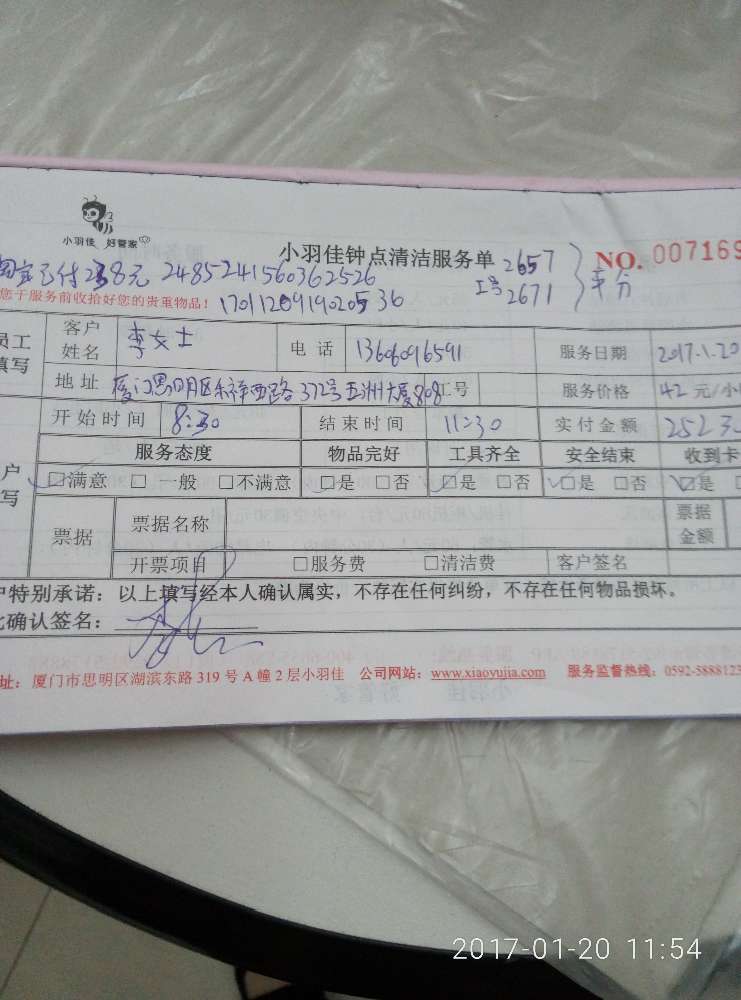 小羽佳 好管家
小羽佳钟点清洁服务单
2657
工号 2671
平分
NO. 007169
淘宝已付238元 2485241560362526
您于服务前收拾好您的贵重物品！ 1701120919020536
员工填写
客户姓名 李女士 电话 13606096591 服务日期 2017.1.20
地址 厦门思明区禾祥西路372号亚洲大厦808 工号 服务价格 42 元/小
开始时间 8:30 结束时间 11:30 实付金额 252
户写
服务态度 物品完好 工具齐全 安全结束 收到卡
□满意 □一般 □不满意 □是 □否 □是 □否 □是 □否 □是
票据 票据名称 票据金额
开票项目 □服务费 □清洁费 客户签名
户特别承诺：以上填写经本人确认属实，不存在任何纠纷，不存在任何物品损坏。
此确认签名：
址：厦门市思明区湖滨东路 319 号 A 幢 2 层小羽佳 公司网站：www.xiaoyujia.com 服务监督热线：0592-5888123
2017-01-20 11:54